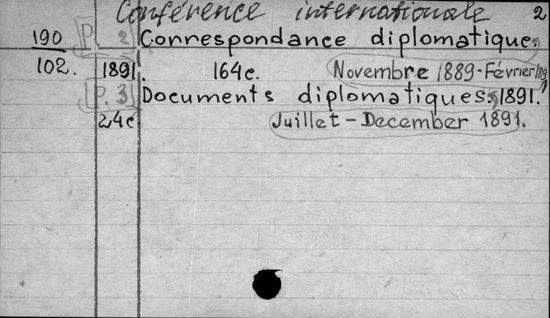 Conférence internationale 2
190 [P. 2] Correspondance diplomatique.
102. 1891. 164c. Novembre 1889-Février 1891
[P. 3] Documents diplomatiques. 1891.
24c Juillet - December 1891.